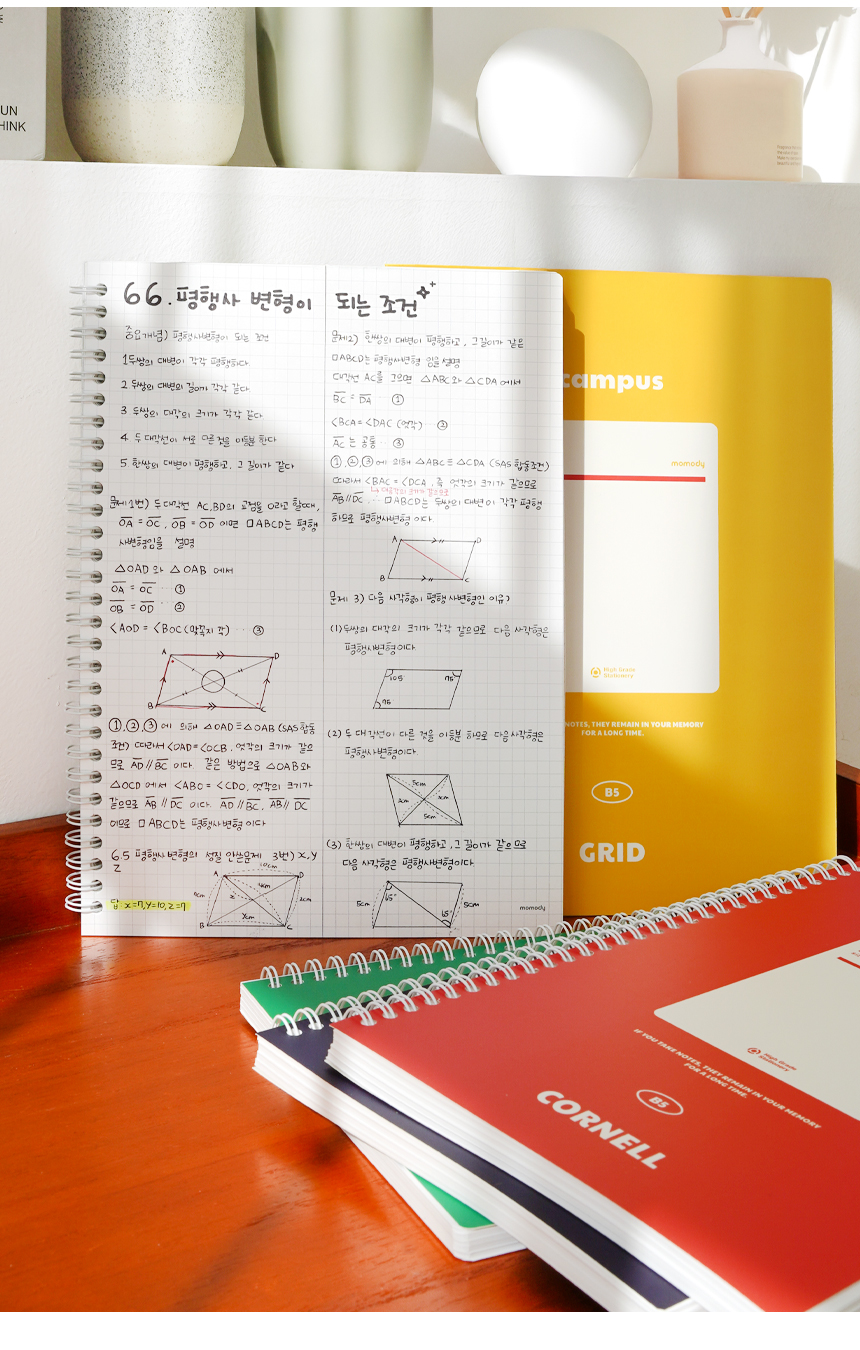 UN
HINK
66. 평행사 변형이 되는 조건
중요개념) 평행사변형이 되는 조건
1 두쌍의 대변이 각각 평행하다
2 두쌍의 대변의 길이가 각각 같다
3 두쌍의 대각의 크기가 각각 같다
4 두 대각선이 서로 다른 것을 이등분 한다
5 한쌍의 대변이 평행하고, 그 길이가 같다
두 대각선 AC, BD의 교점을 O라고 할때,
OA = OC, OB = OD 이면 □ABCD는 평행
사변형임을 설명
△OAD 와 △OAB 에서
OA = OC ··· ①
OB = OD ··· ②
<AOD = <BOC (맞꼭지 각) ··· ③
A
D
B
C
①,②,③ 에 의해 △OAD ≡ △OAB (SAS 합동
조건) 따라서 <OAD = <OCB, 엇각의 크기가 같으
므로 AD // BC 이다. 같은 방법으로 △OAB와
△OCD 에서 <ABO = <CDO, 엇각의 크기가
같으므로 AB // DC 이다. AD // BC, AB // DC
이므로 □ABCD는 평행사변형 이다
6.5 평행사변형의 성질 안쓴문제 3번) x, y
z
A
D
4cm
z
ycm
B
C
답 : x=7, y=10, z=7
문제2) 한쌍의 대변이 평행하고, 그 길이가 같은
□ABCD는 평행사변형 임을 설명
대각선 AC를 그으면 △ABC 와 △CDA 에서
BC = DA ··· ①
<BCA = <DAC (엇각) ··· ②
AC 는 공통 ··· ③
①,②,③ 에 의해 △ABC ≡ △CDA (SAS 합동조건)
따라서 <BAC = <DCA, 즉 엇각의 크기가 같으므로
AB // DC, ··· □ABCD는 두쌍의 대변이 각각 평행
하므로 평행사변형 이다
A
D
B
C
문제 3) 다음 사각형이 평행 사변형인 이유?
(1) 두쌍의 대각의 크기가 각각 같으므로 다음 사각형은
평행사변형이다
105
75°
75
(2) 두 대각선이 다른 것을 이등분 하므로 다음사각형은
평행사변형이다
5cm
5cm
(3) 한쌍의 대변이 평행하고, 그 길이가 같으므로
다음 사각형은 평행사변형이다
5cm
65°
65°
5cm
momody
campus
momody
High Grade
Stationery
NOTES, THEY REMAIN IN YOUR MEMORY
FOR A LONG TIME.
B5
GRID
High Grade
Stationery
IF YOU TAKE NOTES, THEY REMAIN IN YOUR MEMORY
FOR A LONG TIME.
B5
CORNELL